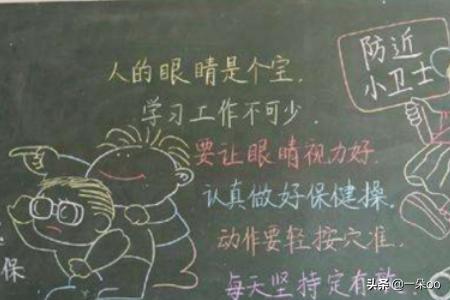 人的眼睛是个宝.
学习工作不可少.
要让眼睛视力好.
认真做好保健操.
动作要轻按穴准.
每天坚持定有效
防近
小卫士
保
头条 @一朵oo